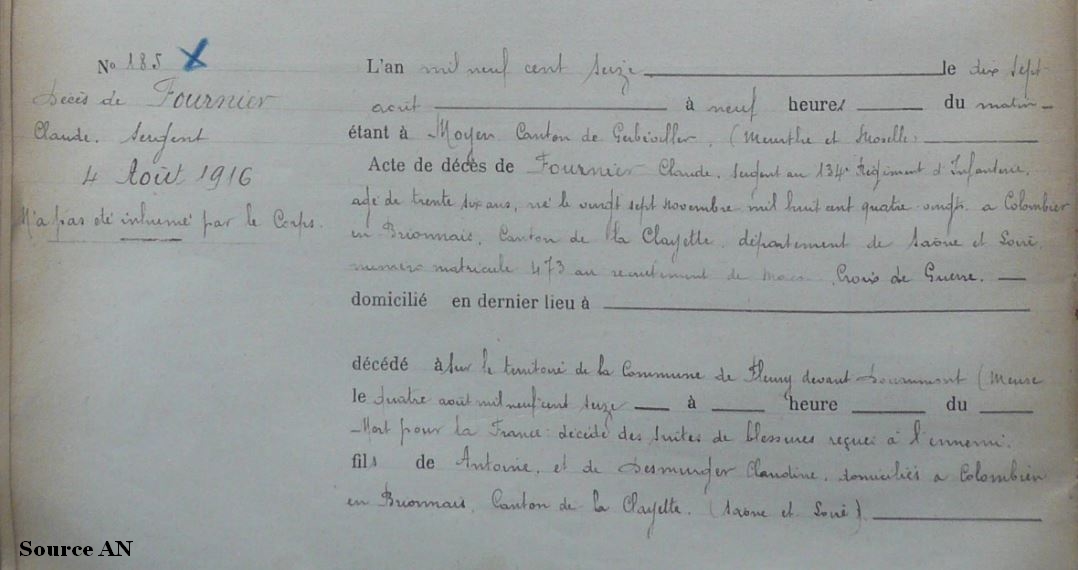 N° 185 X
Décès de Fournier
Claude. Sergent
4 Août 1916
N'a pas été inhumé par le Corps.
L'an mil neuf cent seize le dix sept
août à neuf heures du matin
étant à Moyen Canton de Gerbéviller. (Meurthe et Moselle)
Acte de décès de Fournier Claude, Sergent au 134e Régiment d'Infanterie,
agé de trente six ans, né le vingt sept Novembre mil huit cent quatre-vingt, a Colombier
en Brionnais, Canton de la Clayette, département de Saône et Loire,
numéro matricule 473 au recrutement de Macon. Croix de Guerre.
domicilié en dernier lieu à
décédé à sur le territoire de la Commune de Fleury devant Douaumont (Meuse
le quatre août mil neuf cent seize à heure du
Mort pour la France: décédé des suites de blessures reçues à l'ennemi.
fils de Antoine, et de Desmurger Claudine, domiciliés a Colombier
en Brionnais, Canton de la Clayette. (Saône et Loire).
Source AN